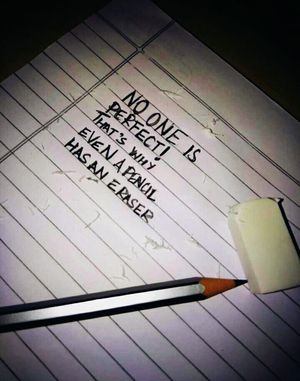 NO ONE IS
PERFECT!
THAT'S WHY
EVEN A PENCIL
HAS AN ERASER